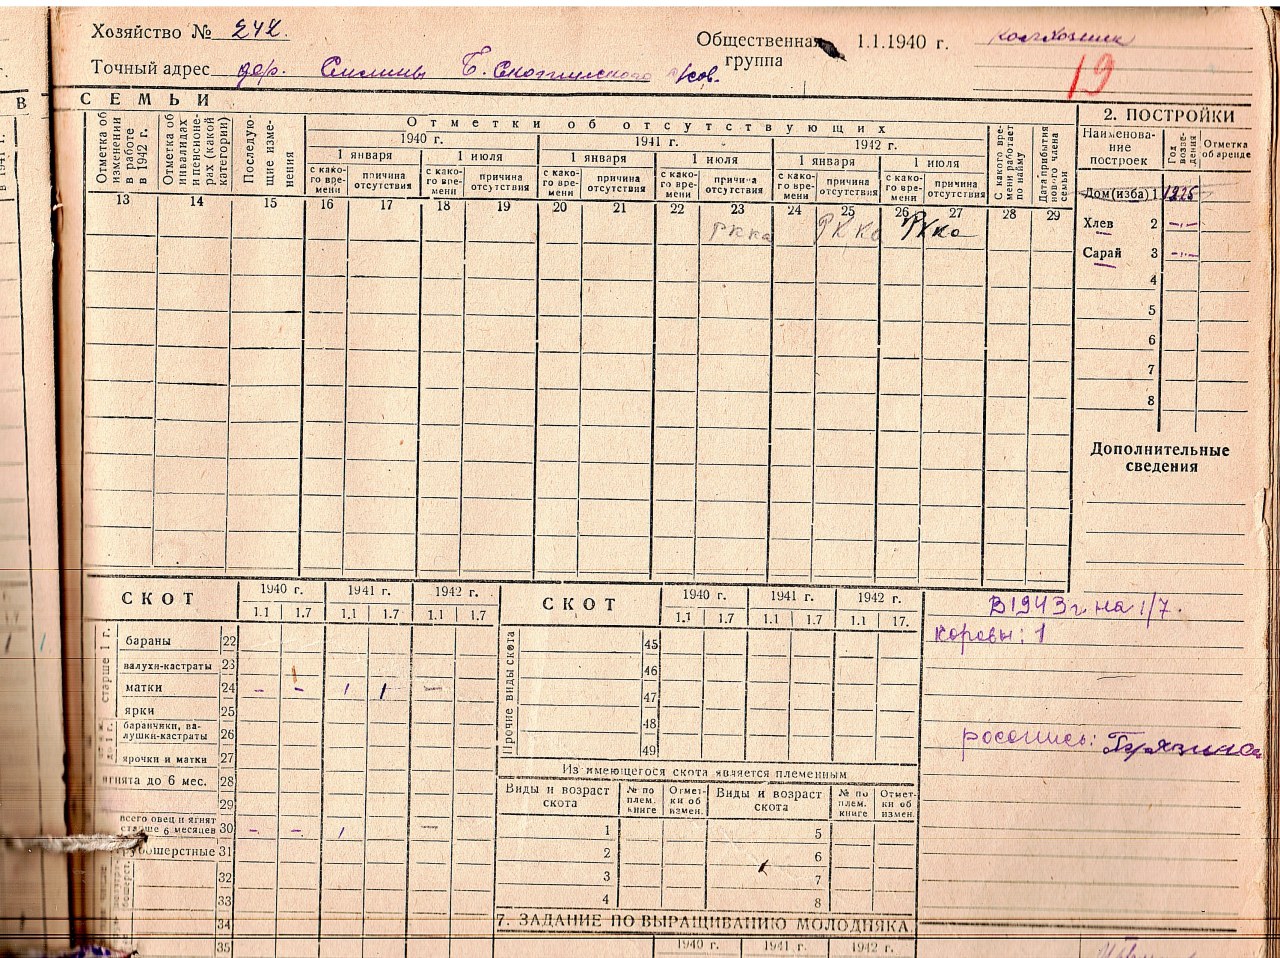 Хозяйство № 242.
Общественная группа 1.1.1940 г. колхозник
19
Точный адрес дер. Б.
В СЕМЬИ
Отметка об изменении в работе в 1942 г.
Отметка об инвалидах и пенсионерах (какой категории)
Последующие изменения
Отметки об отсутствующих
1940 г. 1941 г. 1942 г.
1 января 1 июля 1 января 1 июля 1 января 1 июля
с како- го вре- мени причина отсутствия с како- го вре- мени причина отсутствия с како- го вре- мени причина отсутствия с како- го вре- мени причина отсутствия с како- го вре- мени причина отсутствия с како- го вре- мени причина отсутствия
С какого вре- мени работает по найму
Дата прибытия нов-го члена семьи
13 14 15 16 17 18 19 20 21 22 23 24 25 26 27 28 29
РККа РККа РККа
2. ПОСТРОЙКИ
Наименова- ние построек Год возве- дения Отметка об аренде
Дом (изба) 1 1925
Хлев 2 -"-
Сарай 3 -"-
4
5
6
7
8
Дополнительные
сведения
СКОТ 1940 г. 1941 г. 1942 г.
1.1 1.7 1.1 1.7 1.1 1.7
старше 1 г.
бараны 22
валухи-кастраты 23
матки 24 – – 1 1 –
ярки 25
до 1 г.
баранчики, ва-
лушки-кастраты 26
ярочки и матки 27
ягнята до 6 мес. 28
29
всего овец и ягнят
старше 6 месяцев 30 – – 1 –
грубошерстные 31
32
33
34
35
СКОТ 1940 г. 1941 г. 1942 г.
1.1 1.7 1.1 1.7 1.1 17.
Прочие виды скота
45
46
47
48
49
Из имеющегося скота является племенным
Виды и возраст скота № по плем. книге Отмет- ки об измен. Виды и возраст скота № по плем. книге Отмет- ки об измен.
1 5
2 6
3 7
4 8
7. ЗАДАНИЕ ПО ВЫРАЩИВАНИЮ МОЛОДНЯКА
1940 г. 1941 г. 1942 г.
В 1943 г на 1/7.
коровы: 1
роспись: